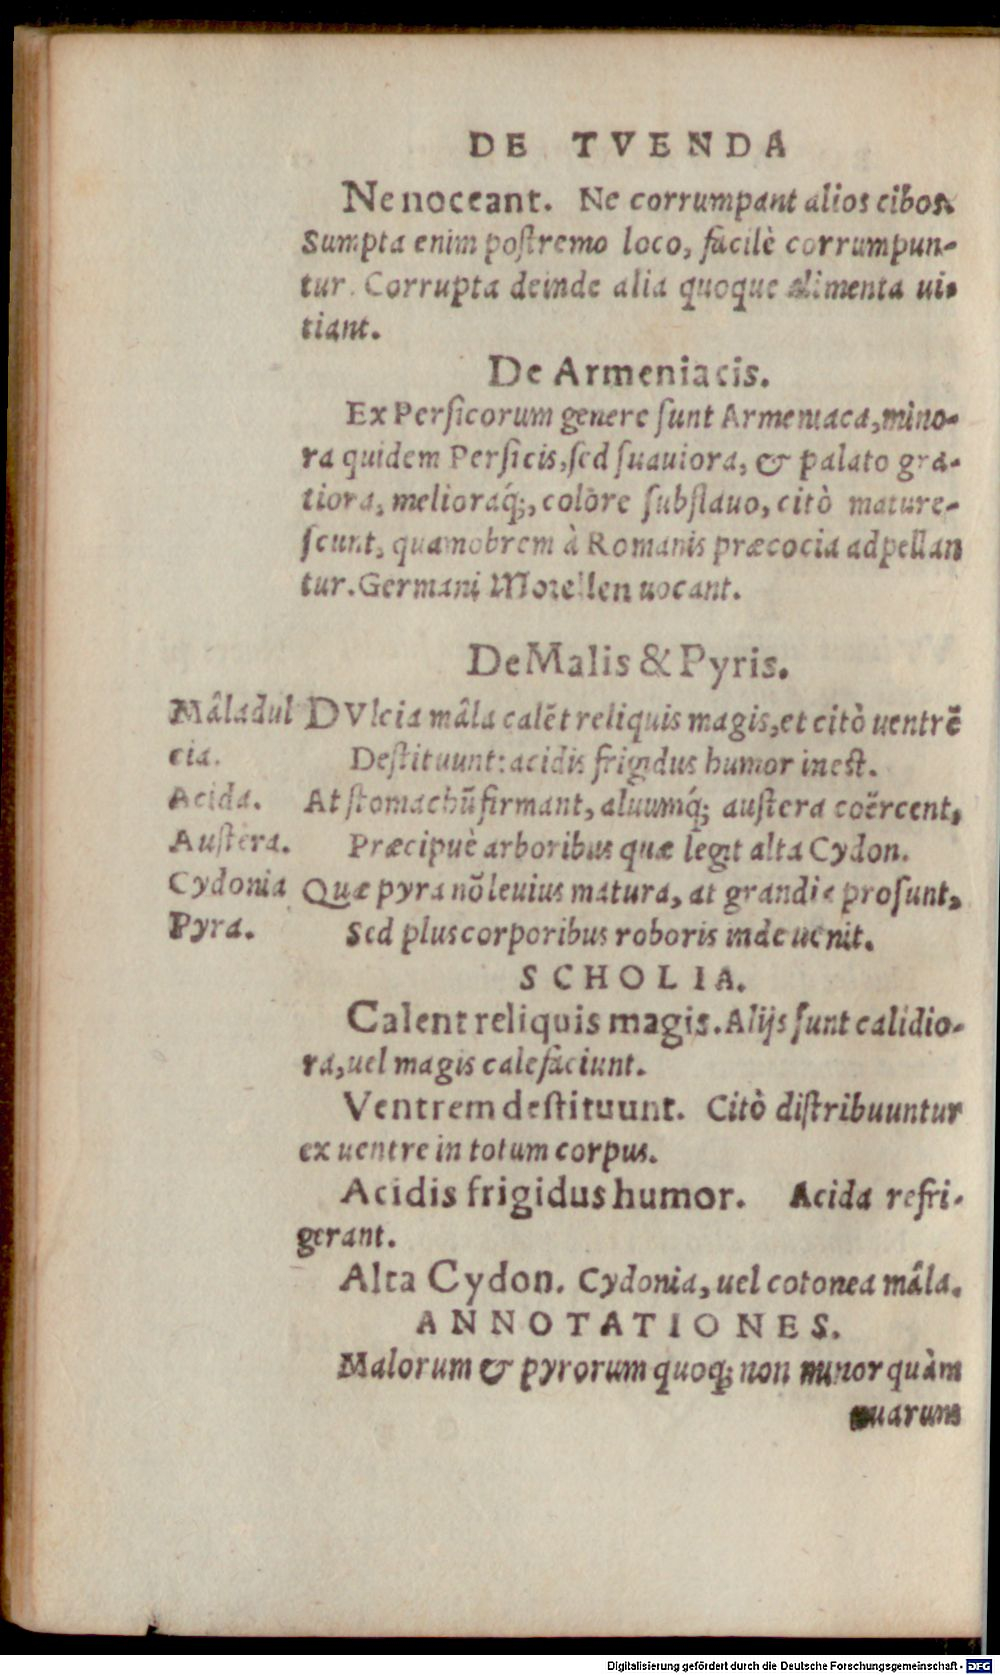 DE TVENDA
Ne noceant. Ne corrumpant alios cibos.
Sumpta enim poſtremo loco, facilè corrumpun-
tur. Corrupta deinde alia quoque alimenta ui-
tiant.
De Armeniacis.
Ex Perſicorum genere ſunt Armeniaca, mino-
ra quidem Perſicis, ſed ſuauiora, & palato gra-
tiora, melioraq́;, colore ſubflauo, citò mature-
ſcunt, quamobrem à Romanis præcocia adpellan
tur. Germani Morellen uocant.
De Malis & Pyris.
Mâla dul
cia.
Acida.
Auſtera.
Cydonia
Pyra.
DVlcia mâla calẽt reliquis magis, et citò uentrẽ
Deſtituunt: acidis frigidus humor ineſt.
At ſtomachũ firmant, aluumq́; auſtera coërcent,
Præcipuè arboribus quæ legit alta Cydon.
Quæ pyra nõ leuius matura, at grandia proſunt,
Sed plus corporibus roboris inde uenit.
SCHOLIA.
Calent reliquis magis. Alijs ſunt calidio-
ra, uel magis calefaciunt.
Ventrem deſtituunt. Citò diſtribuuntur
ex uentre in totum corpus.
Acidis frigidus humor. Acida refri-
gerant.
Alta Cydon. Cydonia, uel cotonea mâla.
ANNOTATIONES.
Malorum & pyrorum quoq; non minor quàm
uuarum
Digitalisierung gefördert durch die Deutsche Forschungsgemeinschaft - DFG